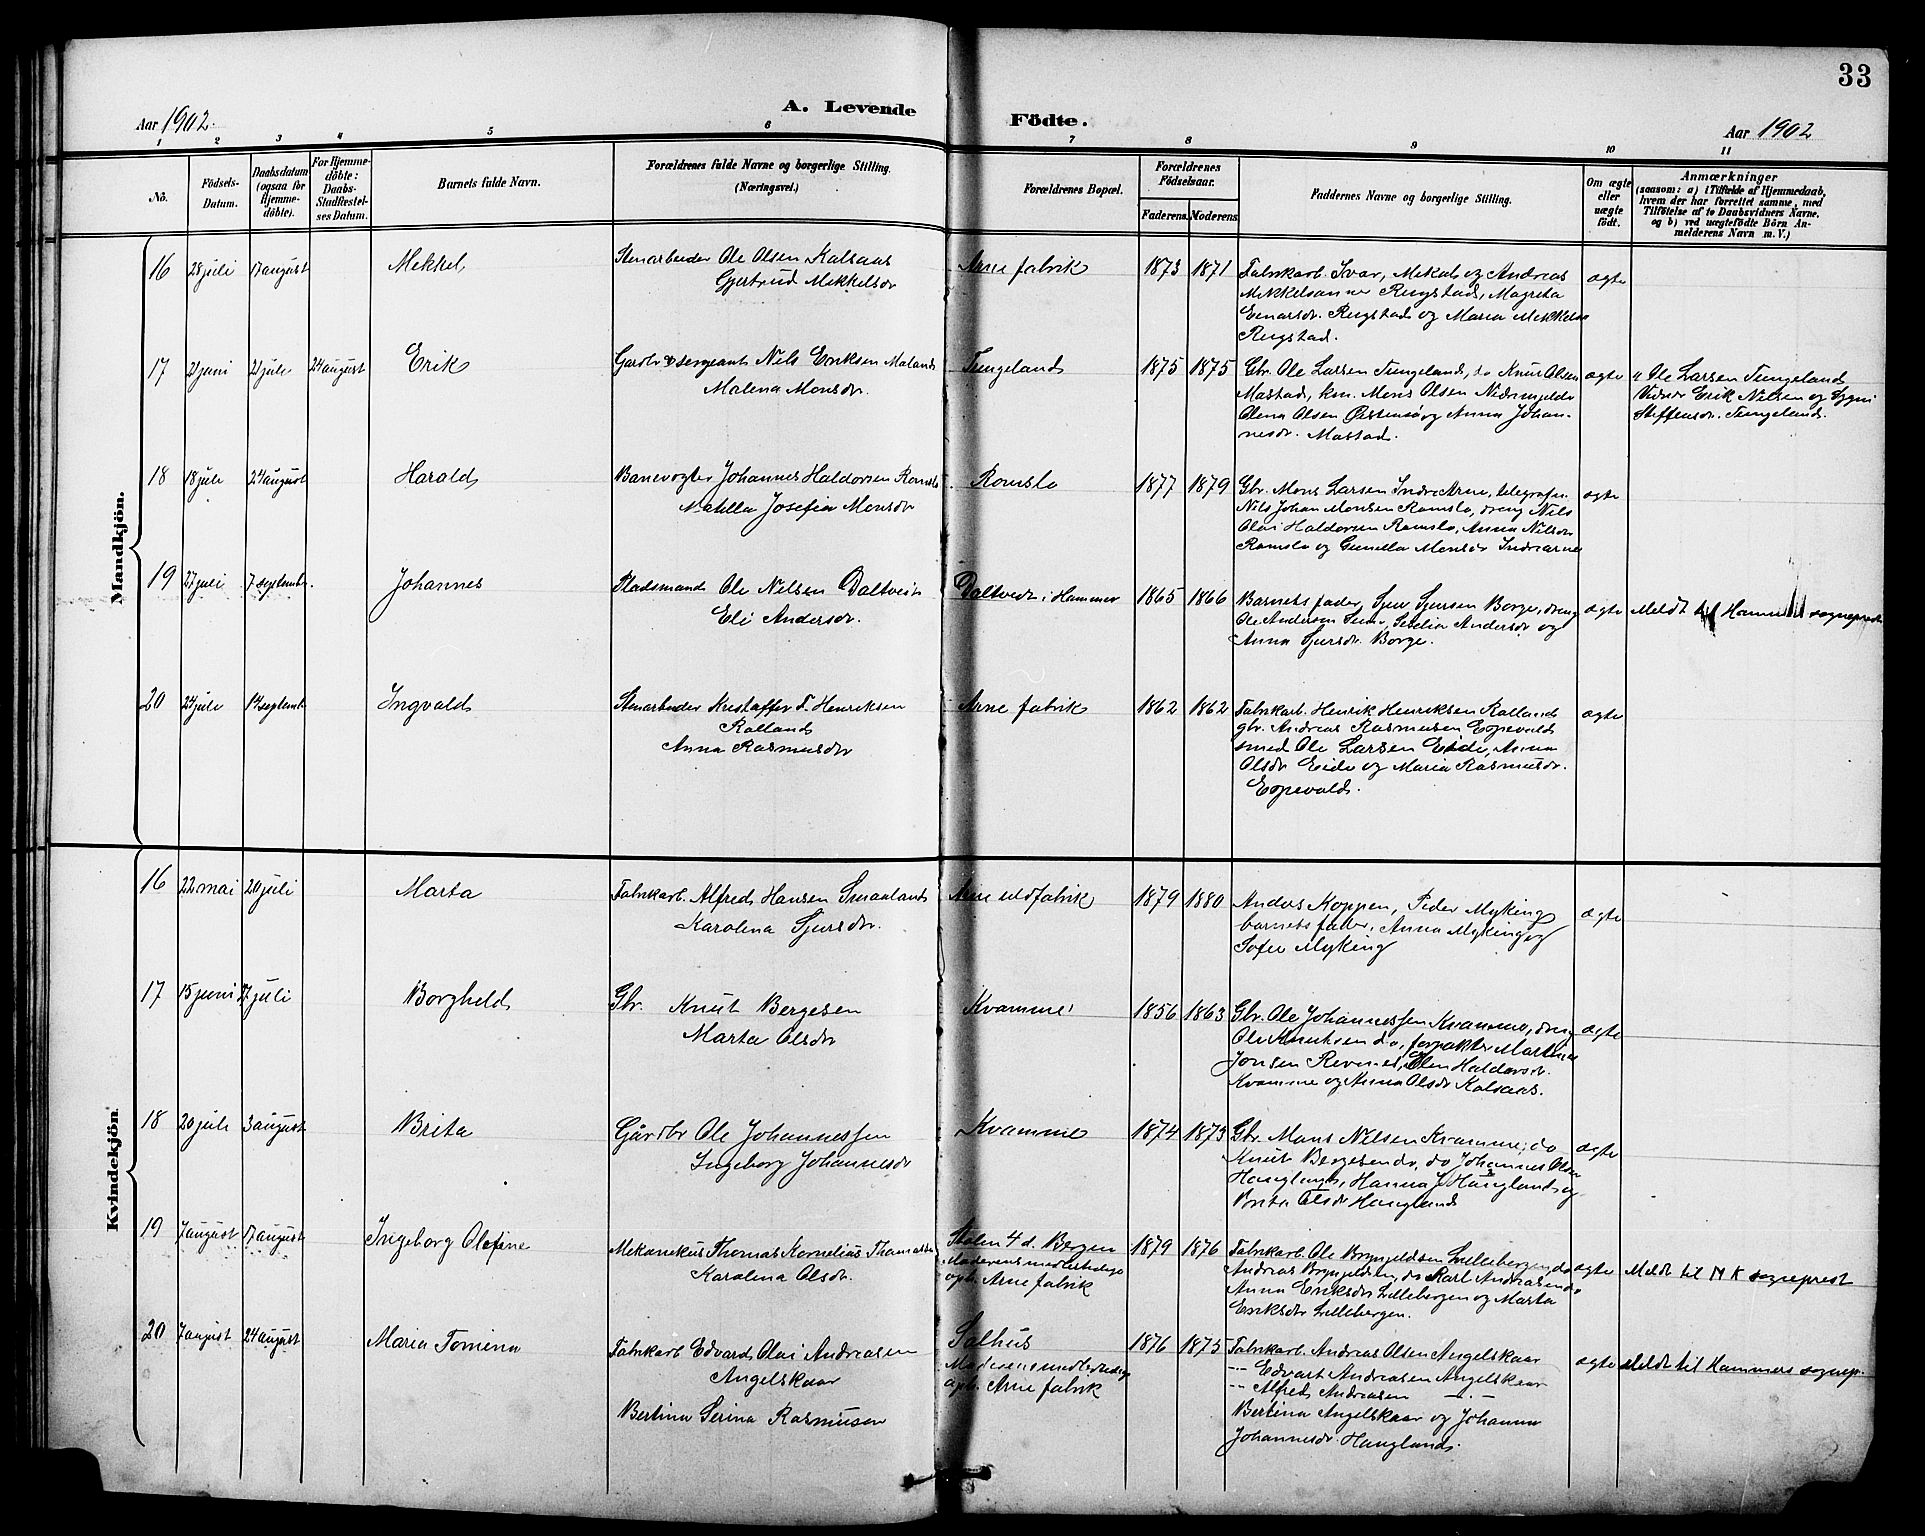 33
A. Levende Födte.
Aar 1902.
Aar 1902
1 2 3 4 5 6 7 8 9 10 11
No.
Födsels-
Datum.
Daabsdatum
(ogsaa for
Hjemme-
döbte).
For Hjemme-
döbte:
Daabs-
Stadfæstel-
ses Datum.
Barnets fulde Navn.
Forældrenes fulde Navne og borgerlige Stilling.
(Næringsvei.)
Forældrenes Bopæl.
Forældrenes
Födselsaar.
Faderens. Moderens.
Faddernes Navne og borgerlige Stilling.
Om ægte
eller
uægte
födt.
Anmærkninger
(saasom: a) i Tilfælde af Hjemmedaab,
hvem der har forrettet samme, med
Tilföielse af to Daabsvidners Navne,
og b) ved uægtefödte Börn An-
melderens Navn m. V.)
Mandkjön.
16 28 juli 17 august Mekkel
Stenarbeider Ole Olsen Kalsaas
Gjertrud Mekkelsdr
Arne fabrik 1873 1871
Fabrikarb. Ivar, Mekal og Andreas
Mekkelsønner Rugstad, Magreta
Einarsdr. Rugstad og Maria Mekkelsd
Rugstad.
ægte
17 2 juni 21 juli 24 august Erik
Gardbr & sergeant Nils Eriksen Maland
Malena Monsdr.
Tungeland 1875 1875
Gbr. Ole Larsen Tungeland, do Knut Olsen
Mastad, kon. Mons Olsen
Olena Olsen og Anna Johan-
nesdr. Mastad.
ægte
Ole Larsen Tungeland
Vidner Erik Nilsen og
Steffensdr. Tungeland.
18 18 juli 24 august Harald
Banevogter Johannes Haldorsen Romslo
Matilla Josefia Monsdr
Romslo 1877 1879
Gbr. Mons Larsen Indre Arne, telegrafm.
Nils Johan Monsen Romslo, dreng Nils
Olai Haldorsen Romslo, Anna Nilsdr
Romslo og Gunilla Monsdr Indrearne
ægte
19 27 juli 7 septembr. Johannes
Pladsmand Ole Nilsen Daltveit
Eli Andersdr.
Daltvedt i Hammer 1865 1866
Barnets fader, Sjur Sjursen Borge, dreng
Ole Andersen, Seselia Andersdr og
Anna Sjursdr. Borge.
ægte
Meldt til Hammers sogneprest
20 24 juli 14 septembr Ingvald
Stenarbeider Kristoffer F. Henriksen
Rolland
Anna Rasmusdr
Arne fabrik 1862 1862
Fabrikarb. Henrik Henriksen Rolland
gbr. Andreas Rasmussen Espevold
smed Ole Larsen Eide, Anna
Olsdr Eide og Maria Rasmusdr.
Espevold.
ægte
Kvindekjön.
16 22 mai 20 juli Marta
Fabrikarb. Alfred Hansen Smaaland
Karolina Sjursdr.
Arne uldfabrik 1879 1880
Anders Koppen, Peder Myking
barnets fader, Anna Myking og
Sofie Myking
ægte
17 15 juni 27 juli Borghild
Gbr. Knut Bergesen
Marta Olsdr
Kvamme 1856 1863
Gbr. Ole Johannessen Kvamme, dreng
Ole Knutsen do, forpakter Martinus
Jonsen Revnes, Elen Haldorsdr.
Kvamme og Anna Olsdr Kalsaas.
ægte
18 20 juli 3 august Brita
Gårdbr Ole Johannessen
Ingeborg Johannesdr
Kvamme 1874 1873
Gbr. Mons Nilsen Kvamme, do
Knut Bergesen do, do Johannes Olsen
Haugland, Hanna J. Haugland og
Brita Olsdr Haugland
ægte
19 7 august 17 august Ingeborg Olefine
Mekanikus Thomas Kornelius Thomassen
Karolina Olsdr.
Stølen 4 d. Bergen
Moderens midlertidige
oph. Arne fabrik
1879 1876
Fabrikarb. Ole Brynjeldsen Lillebergen, do
Andreas Brynjeldsen, do Karl Andreasen do
Anna Eriksdr Lillebergen og Marta
Eriksdr Lillebergen.
ægte
Meldt til N K sogneprest
20 7 august 24 august Maria Tomina
Fabrikarb Edvard Olai Andreasen
Angelskaar
Bertina Serina Rasmusen
Salhus
Moderens midlertidige
oph. Arne fabrik
1876 1875
Fabrikarb. Andreas Olsen Angelskaar
-"- Edvart Andreasen Angelskaar
-"- Alfred Andreasen -"-
Bertina Angelskaar og Johanna
Johannesdr. Haugland.
ægte
Meldt til Hammers sognep.